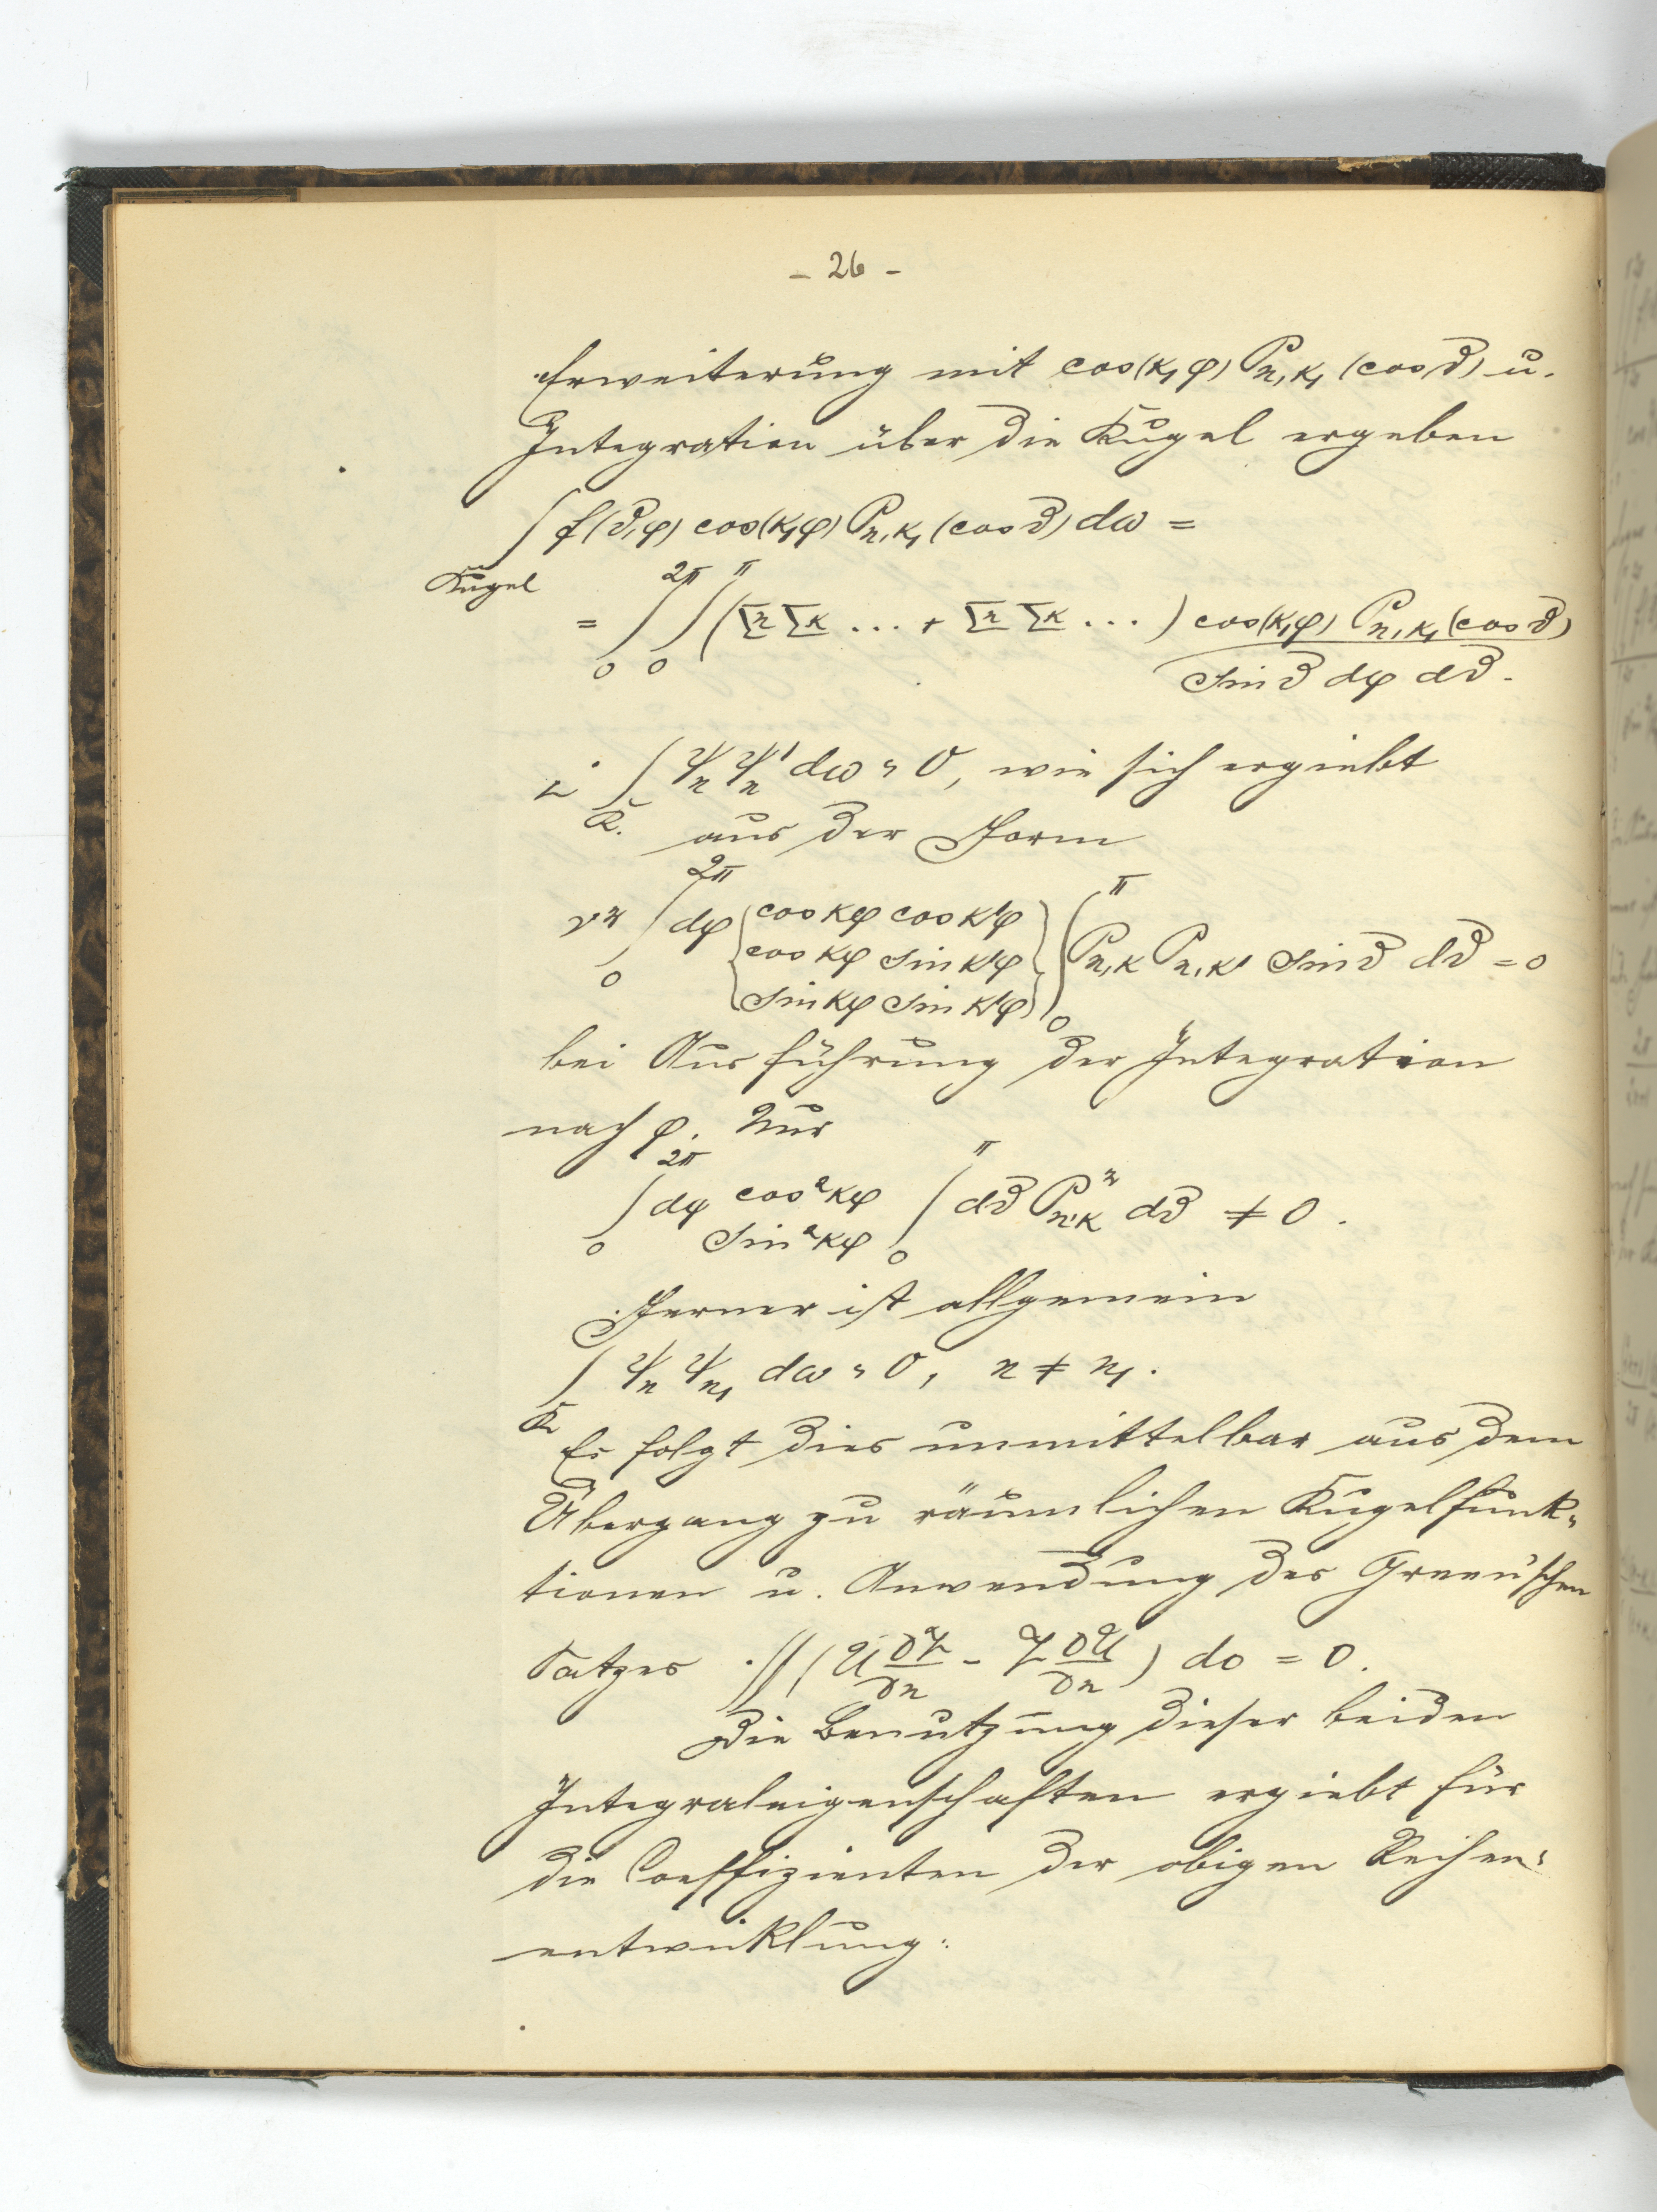 - 26 -
Erweiterung mit cos(κ₁φ) Pₙ,κ₁ (cos ϑ) u.
Integration über die Kugel ergeben
∫ f(ϑ,φ) cos(κ₁φ) Pₙ,κ₁ (cos ϑ) dω =
Kugel
= ∫₀^2π ∫₀^π (Σn Σκ ... + Σn Σκ ...) cos(κ₁φ) Pₙ,κ₁ (cos ϑ)
sin ϑ dφ dϑ.
∫ ψₙ ψₙ' dω = 0, wie sich ergiebt
K. aus der Form
∫₀^2π dφ { cos κφ cos κ'φ
cos κφ sin κ'φ
sin κφ sin κ'φ } ∫₀^π Pₙ,κ Pₙ,κ' sin ϑ dϑ = 0
bei Ausführung der Integration
nach φ. Nur
∫₀^2π dφ cos²κφ
sin²κφ ∫₀^π dϑ P²ₙ,κ dϑ ≠ 0.
Ferner ist allgemein
∫ ψₙ ψₙ₁ dω = 0, n ≠ n₁.
K
Es folgt dies unmittelbar aus dem
Übergang zu räumlichen Kugelfunk-
tionen u. Anwendung des Green'schen
Satzes ∬ (U ∂V/∂n - V ∂U/∂n) do = 0.
Die Benutzung dieser beiden
Integraleigenschaften ergiebt für
die Coeffizienten der obigen Reihen-
entwicklung: